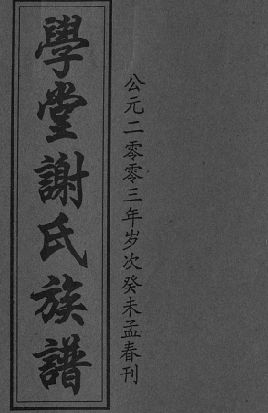 學堂謝氏族譜
公元二零零三年岁次癸未孟春刊